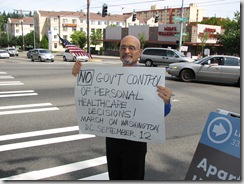 NO GOV'T CONTROL
OF PERSONAL
HEALTHCARE
DECISIONS!
MARCH ON WASHINGTON,
DC SEPTEMBER 12
Apa